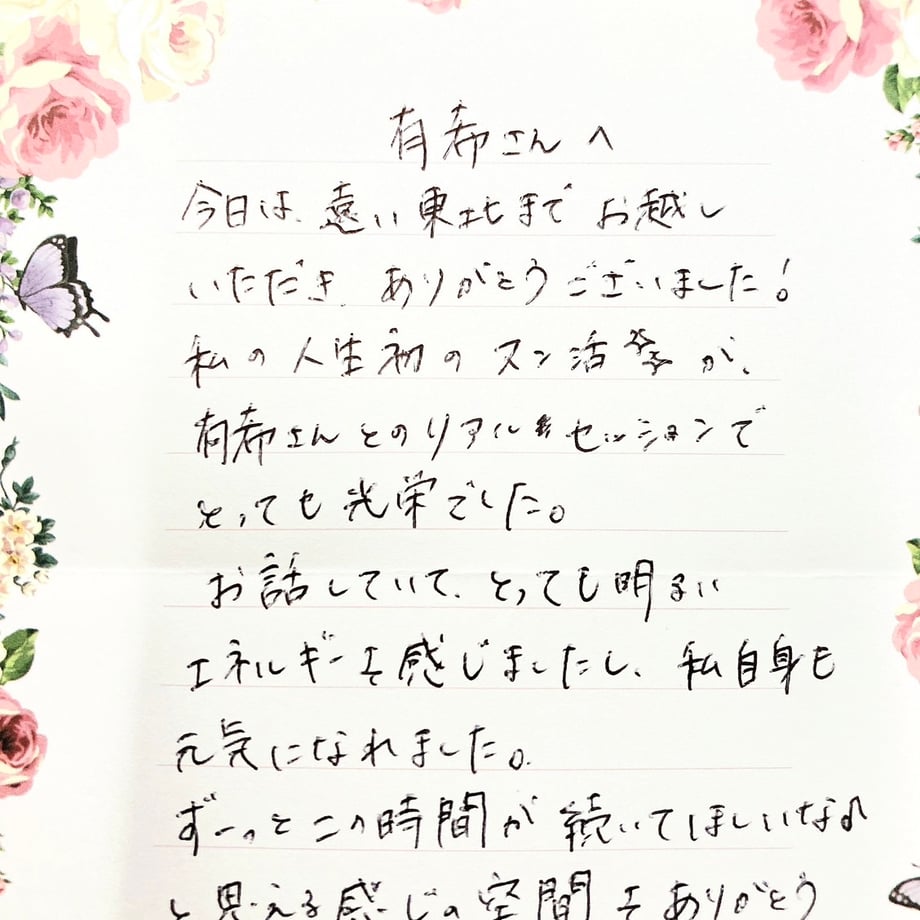 有希さんへ
今日は、遠い東北までお越し
いただき、ありがとうございました!
私の人生初のヌン活が、
有希さんとのリアルセッションで
とっても光栄でした。
お話していて、とっても明るい
エネルギーを感じましたし、私自身も
元気になれました。
ずーっとこの時間が続いてほしいなぁ
と思える感じの空間をありがとう